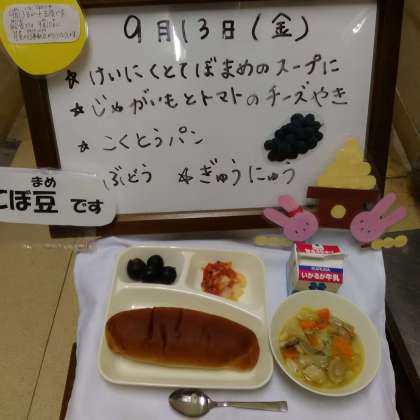 9月13日(金)
☆けいにくとてぼまめのスープに
☆じゃがいもとトマトのチーズやき
・こくとうパン
ぶどう ☆ぎゅうにゅう
まめ
てぼ豆です
いかるが牛乳